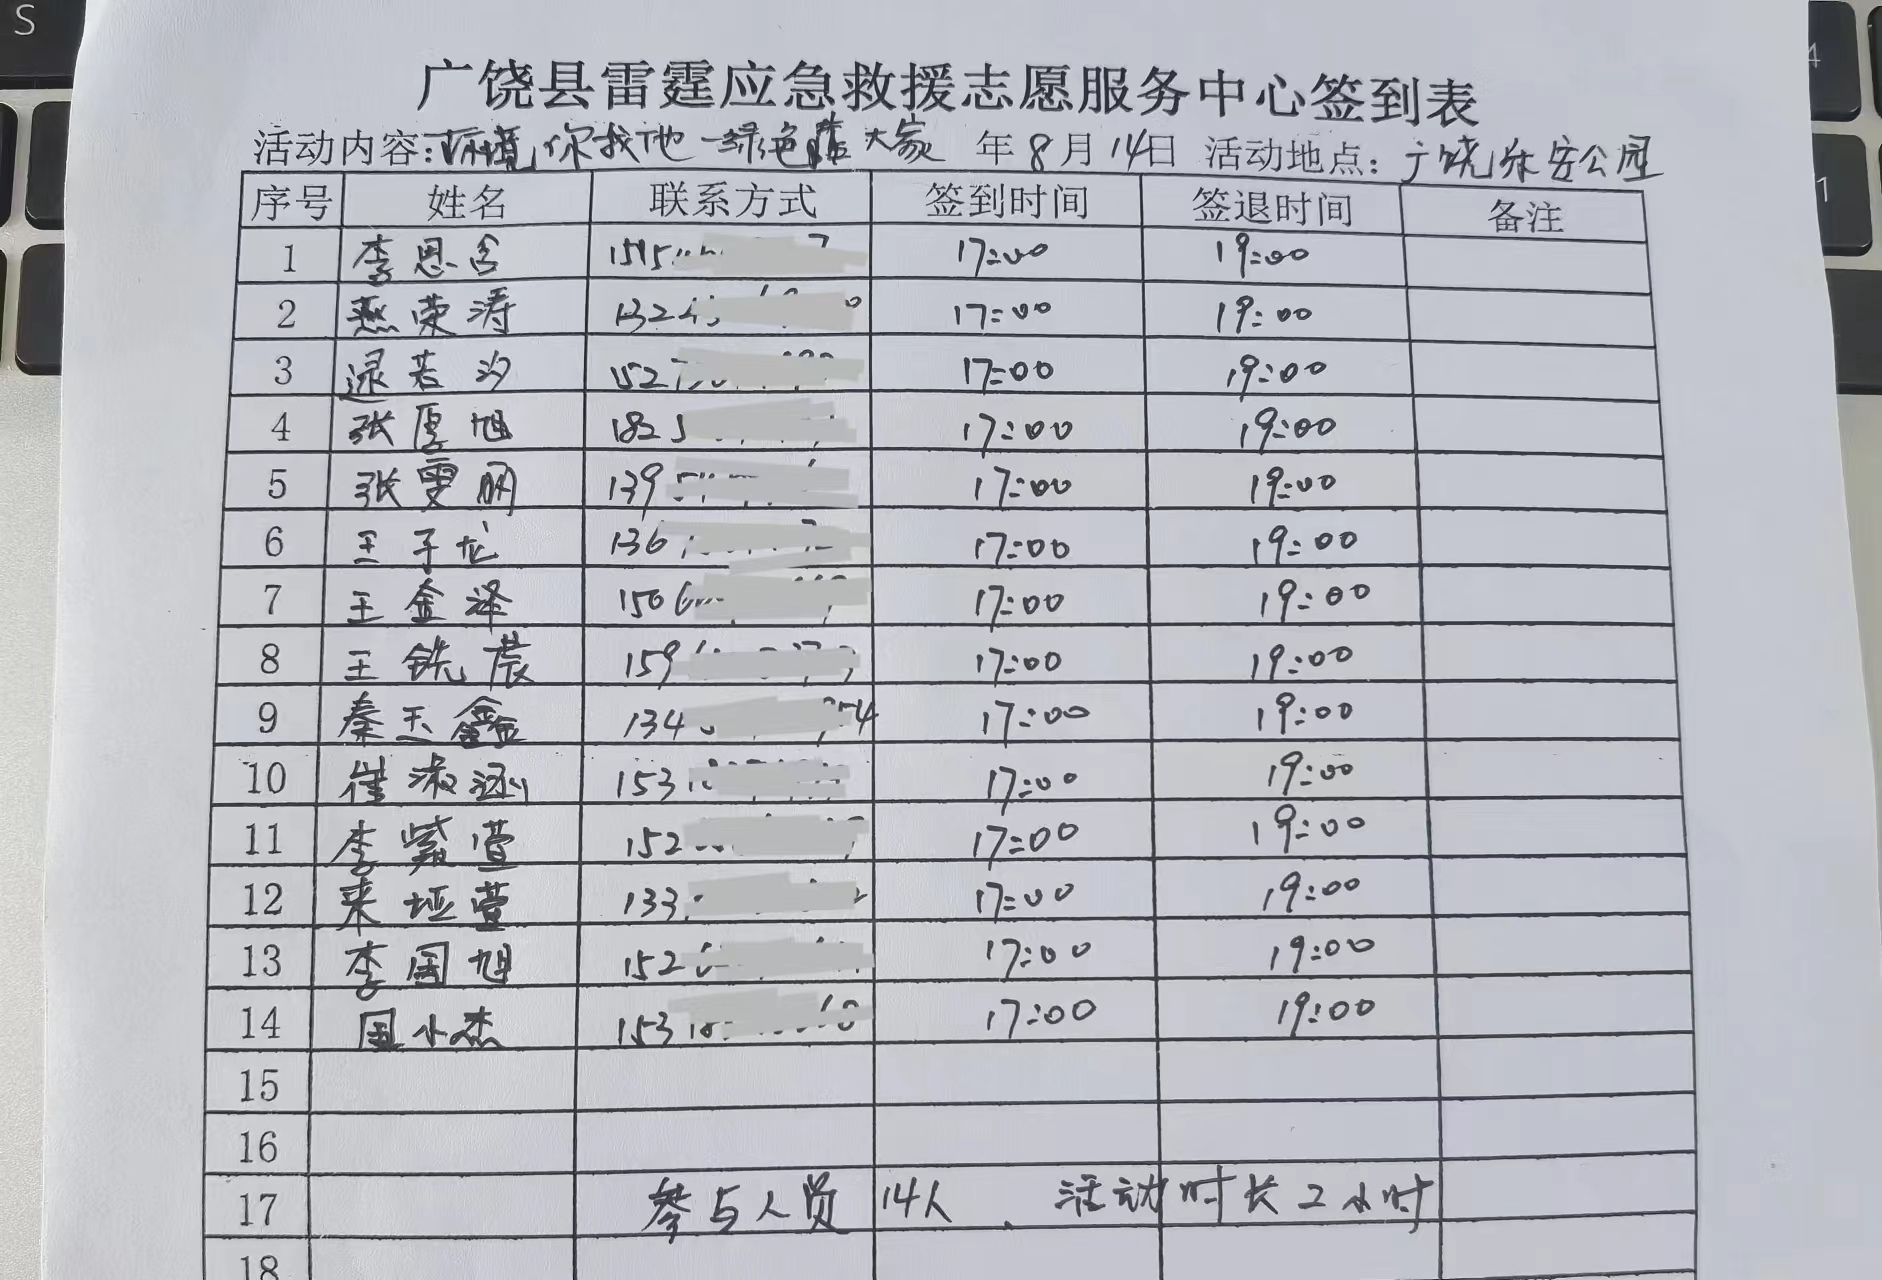 广饶县雷霆应急救援志愿服务中心签到表
活动内容:环境你我他 绿色 大家 年8月14日 活动地点:广饶乐安公园
序号 姓名 联系方式 签到时间 签退时间 备注
1 李思含 17:00 19:00
2 燕荣涛 132 17:00 19:00
3 逯若汐 152 17:00 19:00
4 张厚旭 182 17:00 19:00
5 张雯丽 139 17:00 19:00
6 王子龙 136 17:00 19:00
7 王金泽 150 17:00 19:00
8 王铣晨 159 17:00 19:00
9 秦玉鑫 134 17:00 19:00
10 崔淑涵 153 17:00 19:00
11 李紫萱 152 17:00 19:00
12 来垭萱 133 17:00 19:00
13 李国旭 152 17:00 19:00
14 国小杰 153 17:00 19:00
15
16
17 参与人员 14人、活动时长2小时
18